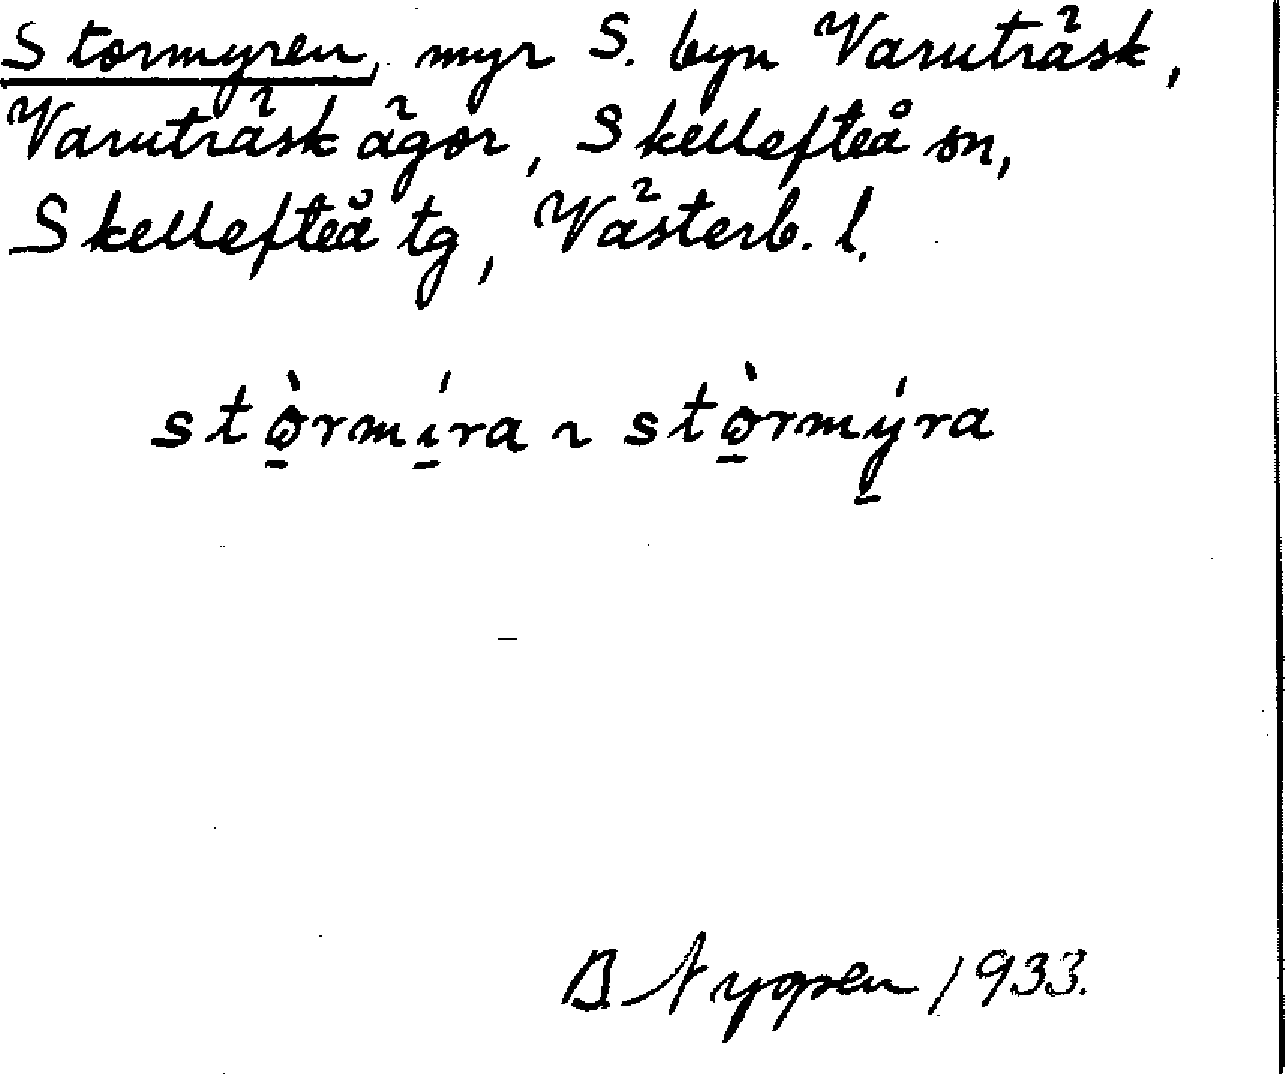 Stormyren, myr S. byn Varuträsk,
Varuträsk ägor, Skellefteå sn,
Skellefteå tg, Västerb. l.
stò̱rmí̱ra ~ stò̱rmý̱ra
B Nygren 1933.